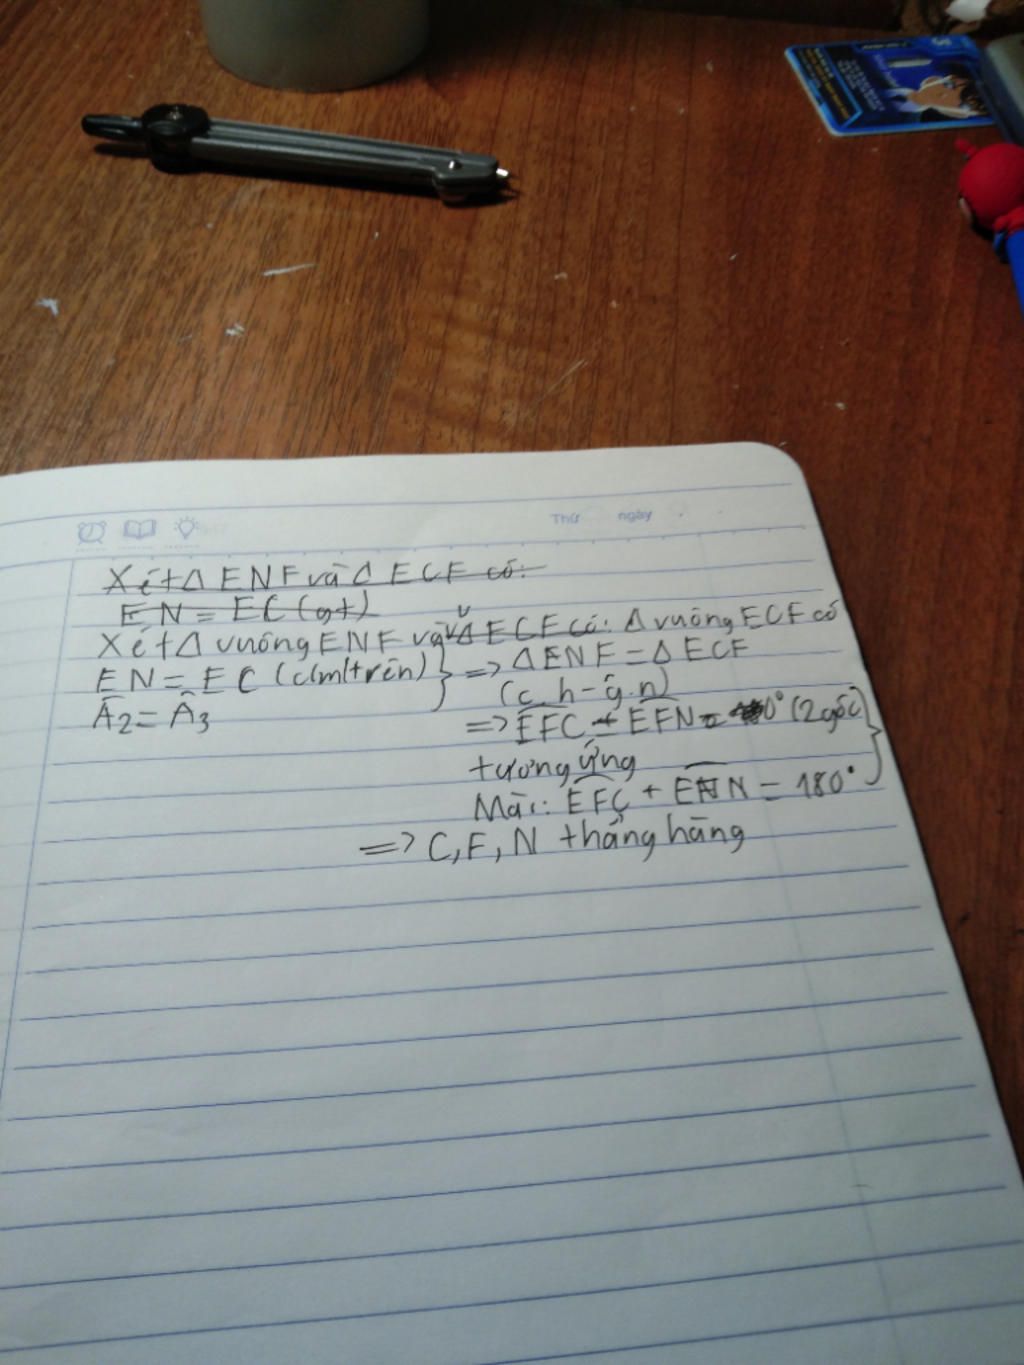 Thứ ngày
Xét Δ ENF và Δ ECF có:
EN = EC (gt)
Xét Δ vuông ENF và Δ ECF có: Δ vuông ECF có
EN = EC (c/m/trên) } => Δ ENF = Δ ECF
Â2 = Â3
(c.h-g.n)
=> EFC = EFN = 0° (2 góc
tương ứng
Mà: EFC + EN N = 180°
=> C, F, N thẳng hàng